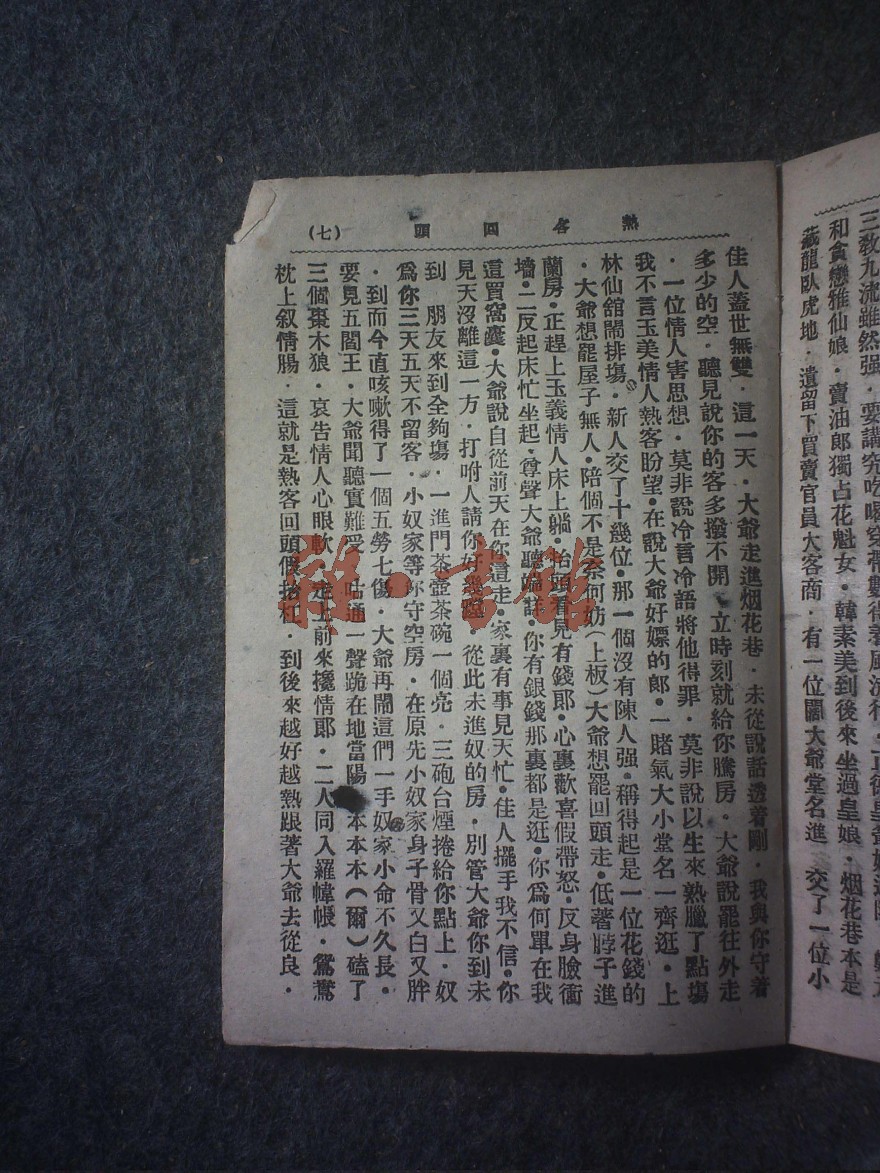 三敎九流雖然强．要講究吃喝穿帶數得着風流行．正德皇爺
和貪戀雅仙娘．賣油郎獨占花魁女．韓素美到後來坐過皇娘．烟花巷本是
藏龍臥虎地．遺留下買賣官員大客商．有一位闊大爺堂名進　交了一位小
熱客回頭　（七）
佳人蓋世無雙．這一天．大爺走進烟花巷．未從說話透着剛．我與你守著
多少的空．聽見說你的客多撥不開　立時刻就給你騰房．大爺說罷往外走
．一位情人害思想．莫非說冷言冷語將他得罪．莫非說以生來熟臘了點塲
我不言玉美情人熱客盼望．在說大爺好嫖的郎．一賭氣大小堂名一齊逛．上
林仙舘鬧排塲．新人交了十幾位．那一個沒有陳人强．稱得起是一位花錢的
．大爺想罷屋子無人．陪個不是奈何妨（上板）大爺想罷回頭走．低著脖子進
蘭房．正趕上玉義情人床上躺．抬頭看見有錢郎．心裏歡喜假帶怒．反身臉衝
墻．二反起床忙坐起．尊聲大爺聽端詳．你有銀錢那裏都是逛．你爲何單在我
這買窩囊．大爺說自從前天在你這走．家裏有事見天忙．佳人擺手我不信．你
見天沒離這一方．打咐人請你好幾盪．從此未進奴的房．別管大爺你到未
到　朋友來到全夠塲．一進門茶壺茶碗一個亮．三砲台煙捲給你點上．奴
爲你三天五天不留客．小奴家等你守空房．在原先小奴家身子骨又白又胖
．到而今直咳嗽得了一個五勞七傷．大爺再鬧這們一手奴家小命不久長．
要見五閻王．大爺聞聽實難受．咕通一聲跪在地當陽　本本本（爾）磕了
三個棗木狼．哀告情人心眼軟．走上前來攙情郎．二人同入羅幃帳．鴛鴦
枕上叙情腸．這就是熱客回頭假拾和．到後來越好越熱跟著大爺去從良．